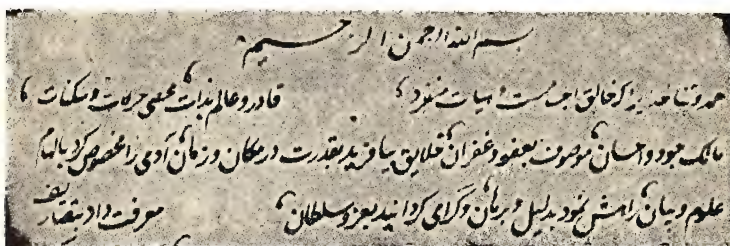 بسم الله الرحمن الرحیم
حمد و ثنا خدایرا که خالق اجسام است و هیات منفرد قادر و عالم بذات محصی حرکات و سکنات
مالک جود و احسان موصوف بعفو و غفران خلایق بیافرید بقدرت در مکان و زمان آدمی را مخصوص کرد بالهام
علوم و بیان راهش نمود بدلیل و برهان و گرامی گردانید بعز و سلطان معرفت داد بتصاریف